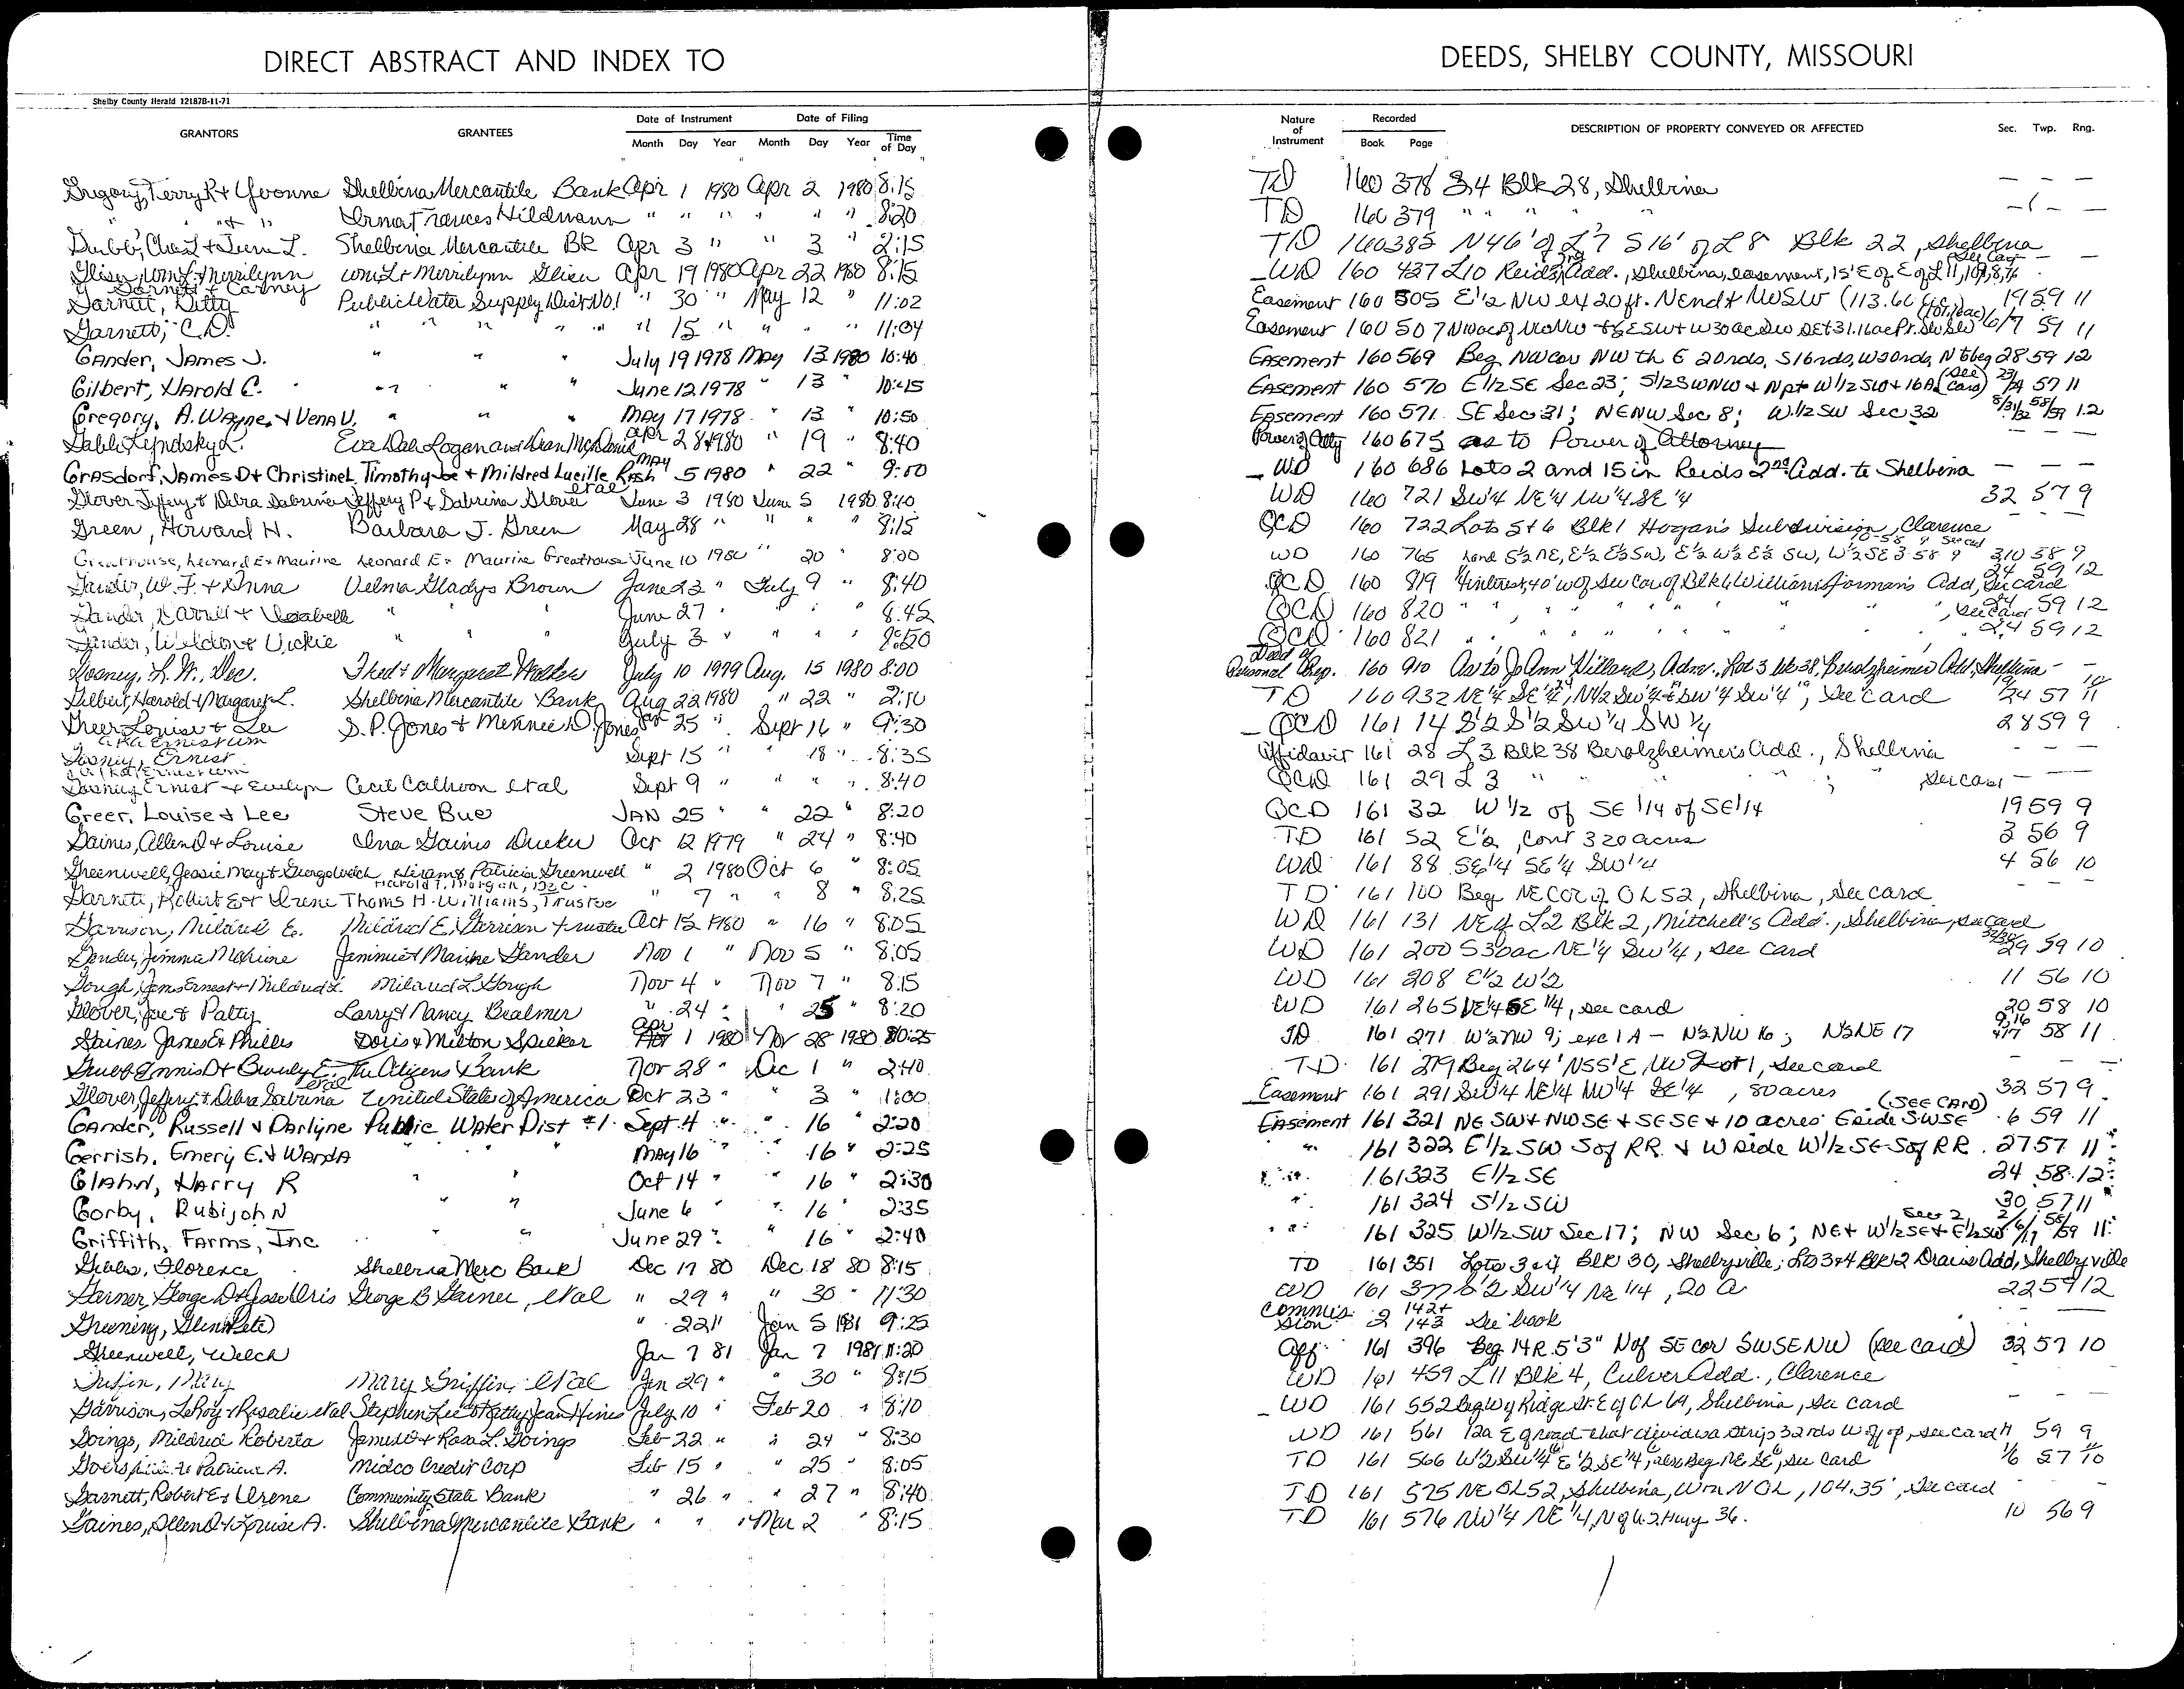 DIRECT ABSTRACT AND INDEX TO
DEEDS, SHELBY COUNTY, MISSOURI
Shelby County Herald 12187B-11-71
GRANTORS GRANTEES Date of Instrument Date of Filing
Month Day Year Month Day Year Time of Day
Nature of Instrument Recorded DESCRIPTION OF PROPERTY CONVEYED OR AFFECTED Sec. Twp. Rng.
Book Page
Gregory, Terry R + Yvonne Shelbina Mercantile Bank Apr 1 1980 Apr 2 1980 8:15 TD 160 378 3,4 Blk 28, Shelbina — — —
" " + " Irma Frances Hildmann " " " " " " 8:20 TD 160 379 " " " " — — —
Grubb, Chas L + June L. Shelbina Mercantile Bk Apr 3 " " 3 " 2:15 TD 160 385 N46' of L 7 S16' of L 8 Blk 22, Shelbina
Wm L + Merrilynn Apr 19 1980 Apr 22 1980 8:15 WD 160 427 L10 Reids 3rd Add., Shelbina, easement, 15' E of E of L 11, 10, 9, 8, 7 See Card
Garnett, Public Water Supply Dist No. 1 " 30 " May 12 " 11:02 Easement 160 505 E 1/2 NW ex 20 ft. N end + NWSW 19 59 11
Garnett, C.D. " " " " " " 15 " " " " 11:04 Easement 160 507 6/7 59 11
Gander, James J. " " " July 19 1978 May 13 1980 10:40 Easement 160 569 Beg NW cor NW th E 20 rds, S 16 rds, W 20 rds, N to beg 28 59 12
Gilbert, Harold C. " " " June 12 1978 " 13 " 10:45 Easement 160 570 E 1/2 SE Sec 23; S 1/2 SWNW + N pt W 1/2 SW + 16 A (see card) 23/24 57 11
Gregory, A. Wayne, + Vena V. " " " May 17 1978 " 13 " 10:50 Easement 160 571 SE Sec 31; NENW Sec 8; W 1/2 SW Sec 32 8/31/32 58/59 12
Apr 28 1980 " 19 " 8:40 Power of Atty 160 675 as to Power of Attorney — — —
Grasdorf, James D + Christine L Timothy Joe + Mildred Lucille Rash May 5 1980 " 22 " 9:00 WD 160 686 Lots 2 and 15 in Reids 2nd Add. to Shelbina — — —
Glover Jeffery + Debra Sabrina Jeffery P + Sabrina Glover et al June 3 1980 June 5 1980 8:10 WD 160 721 SW 1/4 NE 1/4 NW 1/4 SE 1/4 32 57 9
Green, Howard H. Barbara J. Green May 28 " " " " 8:15 QCD 160 722 Lots 5 + 6 Blk 1 Hogan's Subdivision, Clarence — — —
Greathouse, Leonard E + Maurine Leonard E + Maurine Greathouse June 10 1980 " 20 " 8:00 WD 160 765 Land S 1/2 NE, E 1/2 E 1/2 SW, E 1/2 W 1/2 E 1/2 SW, W 1/2 SE 3 58 9 3/10 58 9
Gander, W. F. + Anna Velma Gladys Brown June 23 " July 9 " 8:40 QCD 160 819 Add, See card 24 59 12
Gander, Darrell + Isabell " " " June 27 " " " " 8:45 QCD 160 820 " " " " " " , see card 24 59 12
Gander, Weldon + Vickie " " " July 3 " " " " 8:50 QCD 160 821 " " " " " " 24 59 12
Gosney, L. W., Dec. Fred + Margaret Walker July 10 1979 Aug. 15 1980 8:00 Deed of Personal Rep. 160 910 As to Jo Ann Hilland, Admr., Lot 3 Blk 38, Berolzheimer Add, Shelbina — —
Gilbert, Harold + Margaret L. Shelbina Mercantile Bank Aug 22 1980 " 22 " 2:10 TD 160 932 see card 24 57 11
Greer Louise + Lee S. P. Jones + Minnie D. Jones Jan 25 " Sept 16 " 9:30 QCD 161 14 S 1/2 S 1/2 SW 1/4 SW 1/4 28 59 9
Gosney, Ernest aka Ernest Wm Sept 15 " " 18 " 8:35 Affidavit 161 28 L 3 Blk 38 Berolzheimers Add., Shelbina — — —
Gosney Ernest + Evelyn Cecil Calhoon et al Sept 9 " " " " 8:40 QCD 161 29 L 3 " " " ; See card — —
Greer, Louise + Lee Steve Bue Jan 25 " " 22 " 8:20 QCD 161 32 W 1/2 of SE 1/14 of SE 1/14 19 59 9
Gaines, Allen D + Louise Ina Gaines Drucker Oct 12 1979 " 24 " 8:40 TD 161 52 E 1/2, cont 320 acres 3 56 9
Greenwell, Jessie May + George Welch Hiram + Patricia Greenwell " 2 1980 Oct 6 " 8:05 WD 161 88 SE 1/4 SE 1/4 SW 1/4 4 56 10
Garnett, Robert E + Irene Harold T. Morgan, Dec. Thoms H. Williams, Trustee " 7 " " 8 " 8:25 TD 161 100 Beg NE COR of OL 52, Shelbina, See card — — —
Garrison, Mildred E. Mildred E. Garrison trustee Oct 15 1980 " 16 " 8:05 WD 161 131 NE of L2 Blk 2, Mitchell's Add., Shelbina, see card
Gander, Jimmie + Maxine Jimmie + Maxine Gander Nov 1 " Nov 5 " 8:05 WD 161 200 S 30 ac NE 1/4 SW 1/4, see card 29 59 10
Gough, James Ernest + Mildred L. Mildred L. Gough Nov 4 " Nov 7 " 8:15 WD 161 208 E 1/2 W 1/2 11 56 10
Glover, Joe + Patty Larry + Nancy Bealmer " 24 " " 25 " 8:20 WD 161 265 NE 1/4 SE 1/4, see card 20 58 10
Gaines James E + Phillis Doris + Milton Spieker Apr 1 1980 Nov 28 1980 10:25 TD 161 271 W 1/2 NW 9; exc 1 A - N 1/2 NW 16; N 1/2 NE 17 9,16 +17 58 11
Ennis D + Beverly E. The Citizens Bank Nov 28 " Dec 1 " 2:40 TD 161 279 Beg 264' N 55' E NW Lot 1, see card — — —
Glover, Jeffery + Debra Sabrina et al United States of America Oct 23 " " 3 " 1:00 Easement 161 291 SW 1/4 NE 1/4 NW 1/4 SE 1/4, 80 acres 32 57 9
Gander, Russell + Darlyne Public Water Dist #1 Sept 4 " " 16 " 2:20 Easement 161 321 NE SW + NWSE + SESE + 10 acres E side SWSE (SEE CARD) 6 59 11
Gerrish, Emery E. + Wanda " " " May 16 " " 16 " 2:25 " 161 322 E 1/2 SW S of RR + W side W 1/2 SE S of RR 27 57 11
Glahn, Harry R " " Oct 14 " " 16 " 2:30 " 161 323 E 1/2 SE 24 58 12
Gorby, Rubijohn " " June 6 " " 16 " 2:35 " 161 324 S 1/2 SW 30 57 11
Griffith, Farms, Inc " " June 29 " " 16 " 2:40 " 161 325 W 1/2 SW Sec 17; NW Sec 6; NE + W 1/2 SE + E 1/2 SW Sec 2 2/6/17 58/59 11
Florence Shelbina Merc Bank Dec 17 80 Dec 18 80 8:15 TD 161 351 Lots 3 + 4 Blk 30, Shelbyville; Lts 3+4 Blk 12 Add, Shelbyville
Garner, George D + Jesse Oris George B Garner, et al " 29 " " 30 " 11:30 WD 161 377 SW 1/4 NE 1/4, 20 A 22 59 12
Greening, Glenn (Pete) " 22 " Jan 5 1981 9:25 Commission 2 142+ 143 See book
Greenwell, Welch Jan 7 81 Jan 7 1981 11:20 Aff. 161 396 Beg. 14 R. 5'3" N of SE cor SWSENW (see card) 32 57 10
Griffin, Mary Mary Griffin, et al Jan 29 " " 30 " 8:15 WD 161 459 L 11 Blk 4, Culver Add., Clarence — — —
Garrison, LeRoy + Rosalie et al Stephen Lee + Kathy Jean Hines July 10 " Feb 20 " 8:10 WD 161 552 Beg W of Ridge St. E of OL 69, Shelbina, see card — — —
Goings, Mildred Roberta James W + Rosa L. Goings Feb 22 " " 24 " 8:30 WD 161 561 12a E of road that divides a strip 32 rds W off of, see card 11 59 9
Goers + Patricia A. Midco Credit Corp Feb 15 " " 25 " 8:05 TD 161 566 see card 1/6 57 10
Garnett, Robert E + Irene Community State Bank " 26 " " 27 " 8:40 TD 161 575 NE OL 52, Shelbina, W on N OL, 104.35', see card —
Gaines, Allen D + Louise A. Shelbina Mercantile Bank " " " Mar 2 " 8:15 TD 161 576 NW 1/4 NE 1/4, N of U.S. Hwy 36. 10 56 9